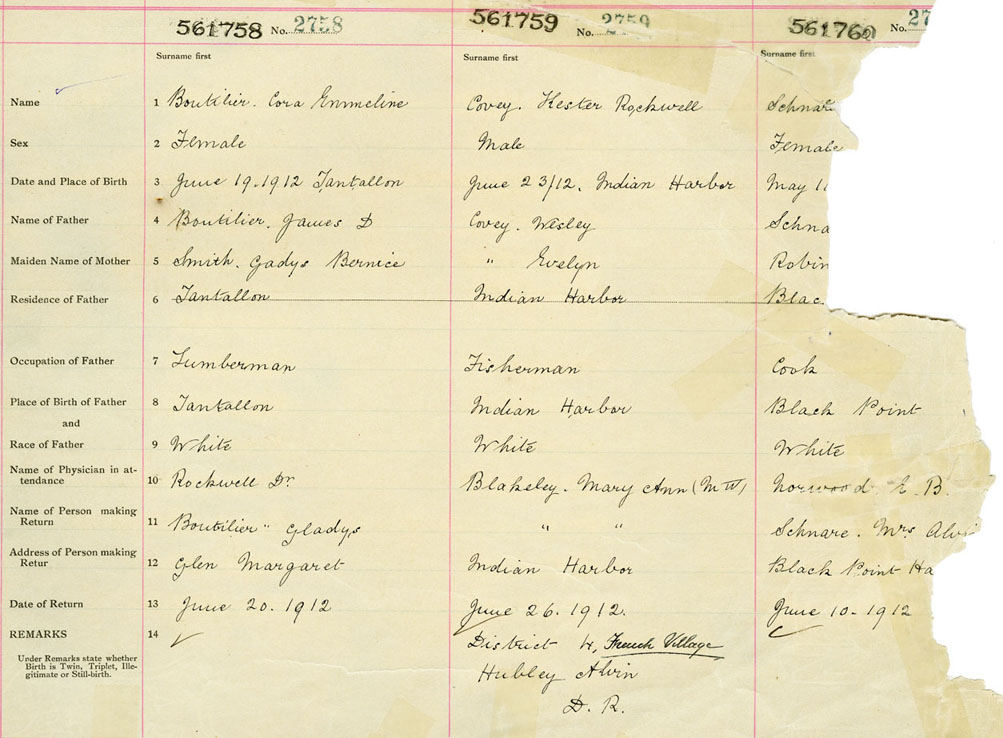 561758 No. 2758 561759 No. 2759 561760 No. 27
Surname first Surname first Surname first
Name 1 Boutilier. Cora Emmeline Covey. Hester Rockwell Schnar
Sex 2 Female Male Female
Date and Place of Birth 3 June 19. 1912 Tantallon June 23/12. Indian Harbor May 11
Name of Father 4 Boutilier. James D Covey. Wesley Schna
Maiden Name of Mother 5 Smith. Gadys Bernice " Evelyn Robin
Residence of Father 6 Tantallon Indian Harbor Blac
Occupation of Father 7 Lumberman Fisherman Cook
Place of Birth of Father 8 Tantallon Indian Harbor Black Point
and
Race of Father 9 White White White
Name of Physician in at-
tendance 10 Rockwell Dr. Blakeley. Mary Ann (M W) Norwood. E. B.
Name of Person making
Return 11 Boutilier " Gladys " " Schnare. Mrs Alvi
Address of Person making
Retur 12 Glen Margaret Indian Harbor Black Point Ha
Date of Return 13 June 20. 1912 June 26. 1912. June 10- 1912
REMARKS 14 District 4, French Village
Under Remarks state whether
Birth is Twin, Triplet, Ille-
gitimate or Still-birth.
Hubley Alvin
D. R.